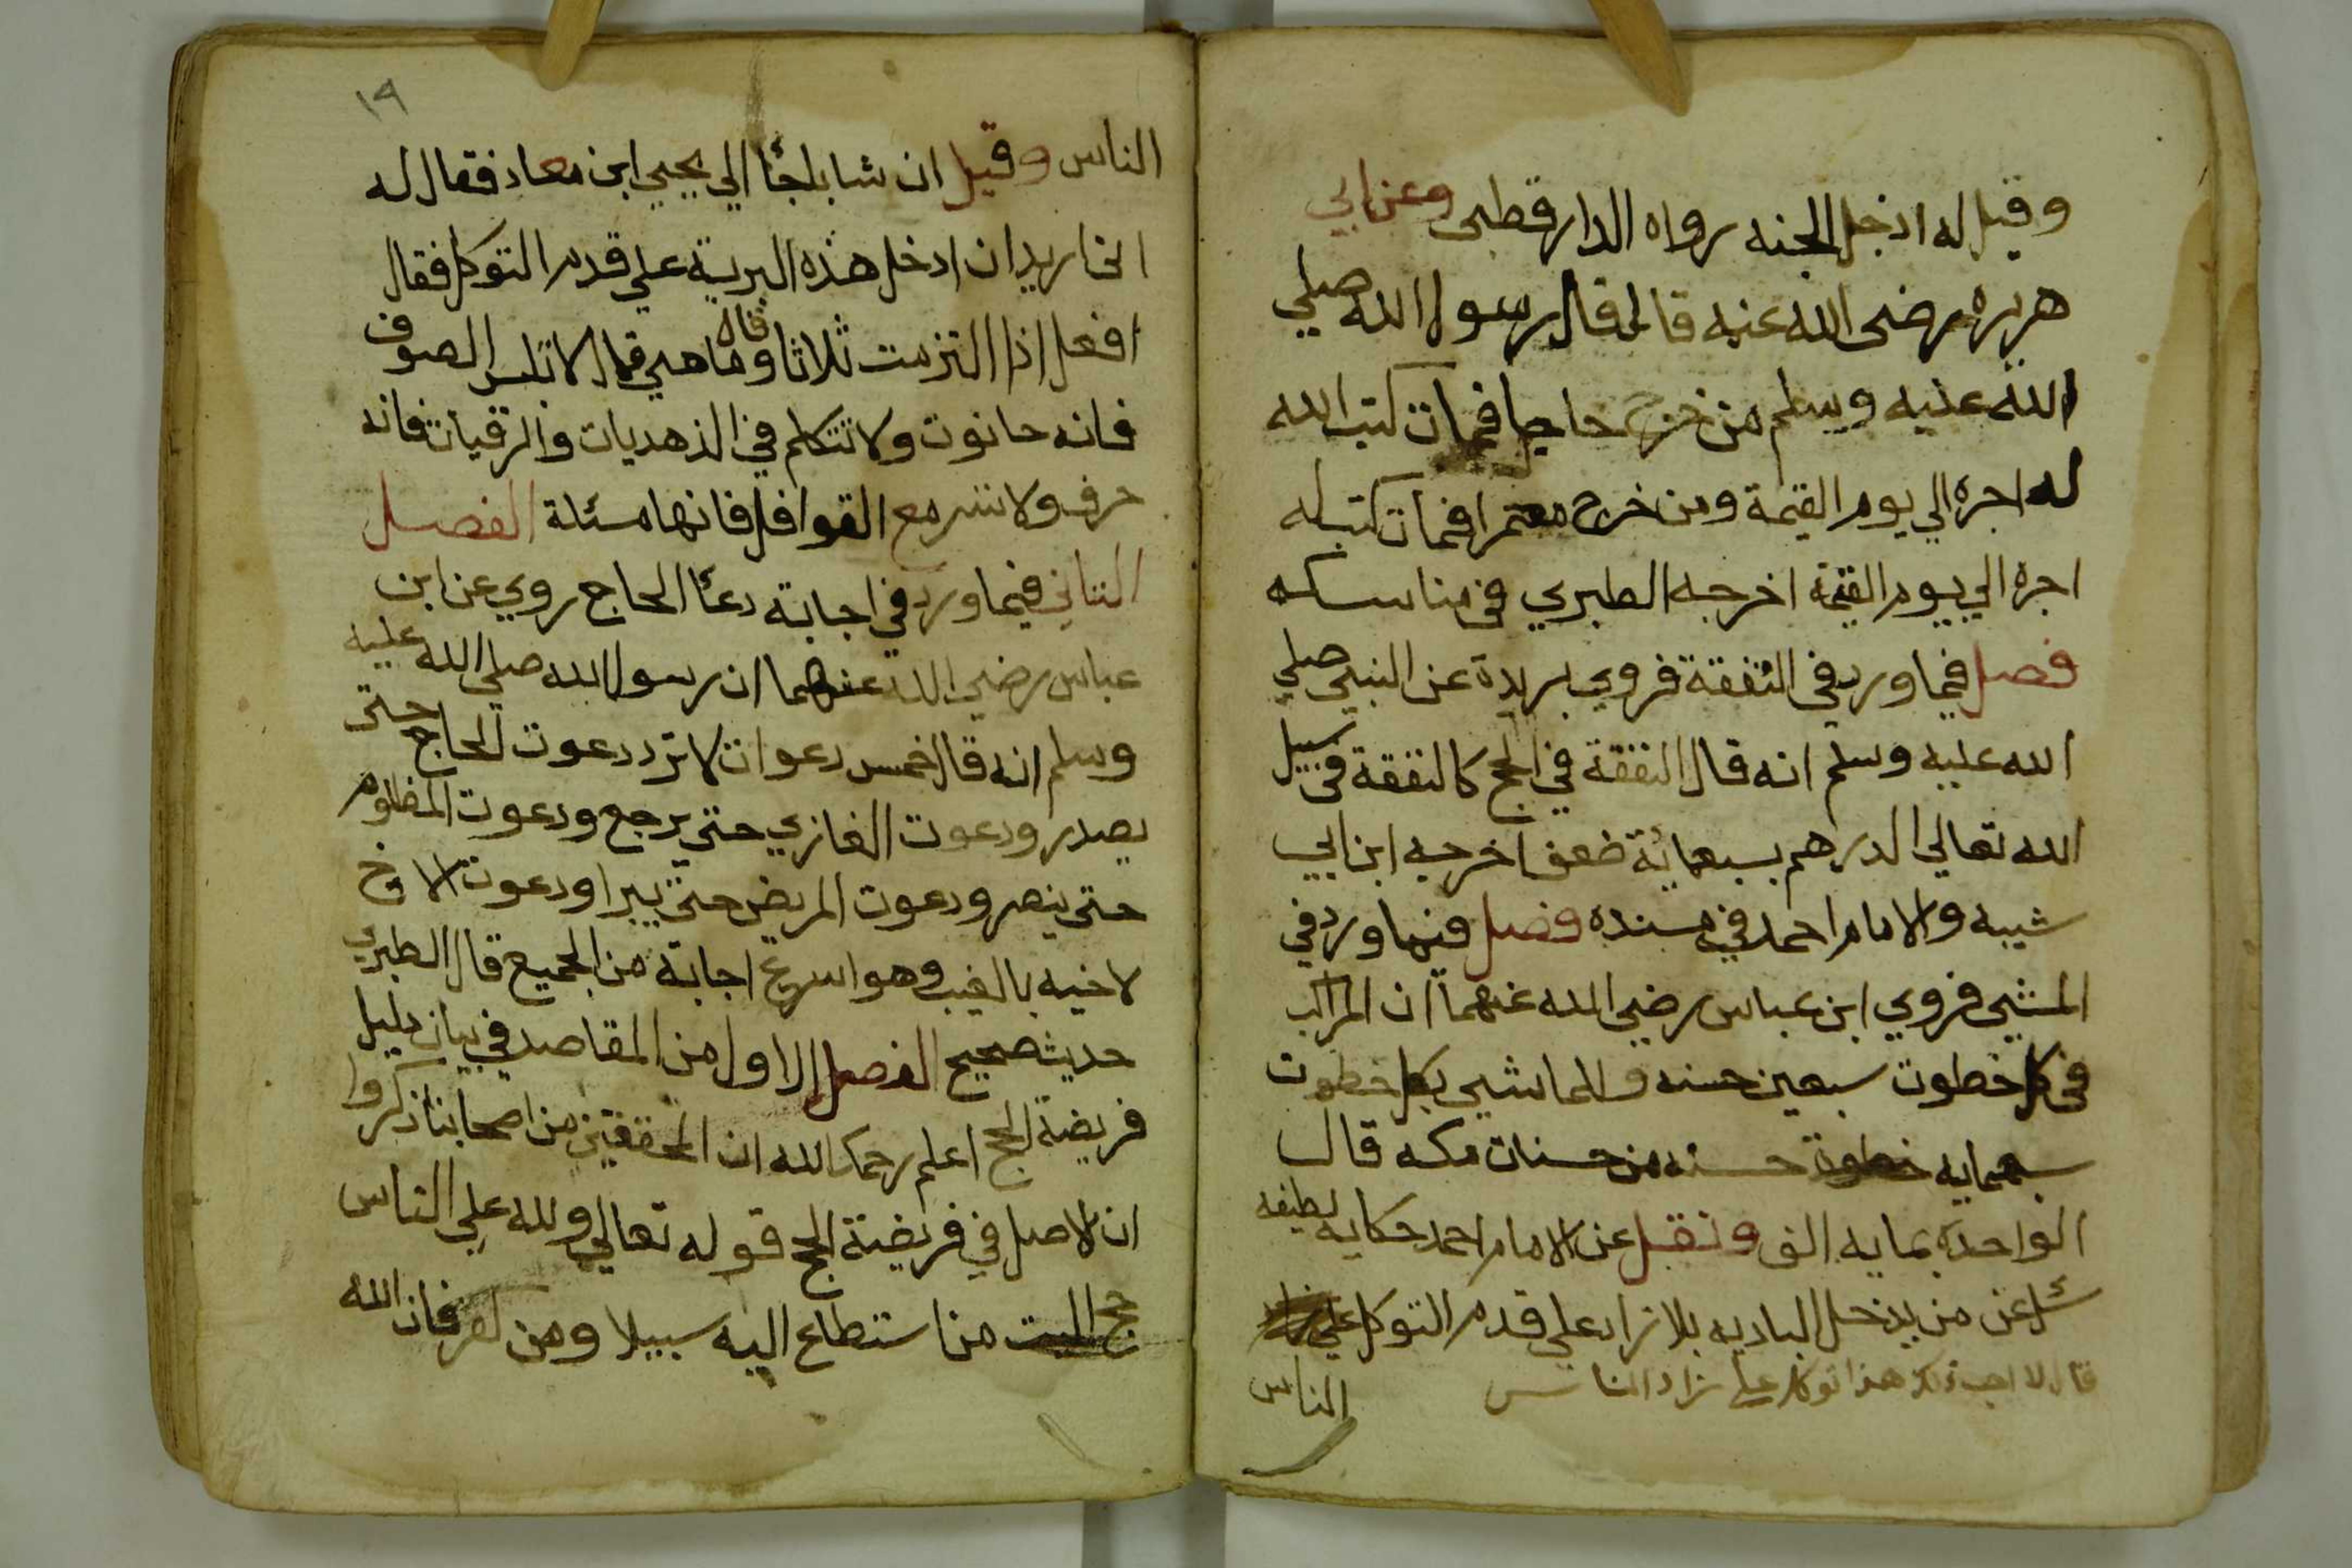 وقيل له ادخل الجنه رواه الدار قطني وعن ابي
هريره رضى الله عنه قال قال رسول الله صلي
الله عليه وسلم من خرج حاجا فمات كتب الله
له اجره الي يوم القيمة ومن خرج معتمرا فمات كتب له
اجره الي يوم القيمة اخرجه الطبري في مناسكه
فصل فيما ورد في النفقة فروي بريدة عن النبي صلي
الله عليه وسلم انه قال النفقة في الحج كالنفقة في سبيل
الله تعالي الدرهم بسبعمائة ضعف اخرجه ابن ابي
شيبه والامام احمد في مسنده فصل فيما ورد في
المشي فروي ابن عباس رضي الله عنهما ان للراكب
في كل خطوت سبعين حسنه وللماشي بكل خطوت
سبعمايه خطوة حسنه من حسنات مكه قال
الواحدة بمايه الف ونقل عن الامام احمد حكايه لطيفه
سئل عن من يدخل الباديه بلا زاد علي قدم التوكل علي
قال لا احب ذلك هذا توكل علي زاد الناس
الناس
١٩
الناس وقيل ان شابا جئا الي يحيي ابن معاذ فقال له
اني اريد ان ادخل هذه البرية علي قدم التوكل فقال
افعل اذا التزمت ثلاثا قال وما هي قال لا تلبس الصوف
فانه حانوت ولا تتكلم في الزهديات والرقيات فانه
حرف ولا تسر مع القوافل فانها مسئلة الفصل
الثاني فيما ورد في اجابة دعا الحاج روي عن ابن
عباس رضي الله عنهما ان رسول الله صلي الله عليه
وسلم انه قال خمس دعوات لا ترد دعوت الحاج حتي
يصدر ودعوت الغازي حتي يرجع ودعوت المظلوم
حتي ينصر ودعوت المريض حتي يبرا ودعوت الاخ
لاخيه بالغيب وهو اسرع اجابة من الجميع قال الطبري
حديث صحيح الفصل الاول من المقاصد في بيان دليل
فريضة الحج اعلم رحمك الله ان المحققين من اصحابنا ذكروا
ان الاصل في فريضة الحج قوله تعالي ولله علي الناس
حج البيت من استطاع اليه سبيلا ومن كفر فان الله